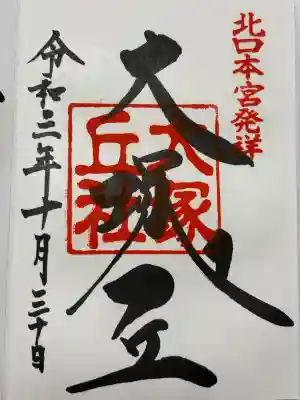 北口本宮発祥
大塚丘
大塚
丘社
令和三年十月三十日